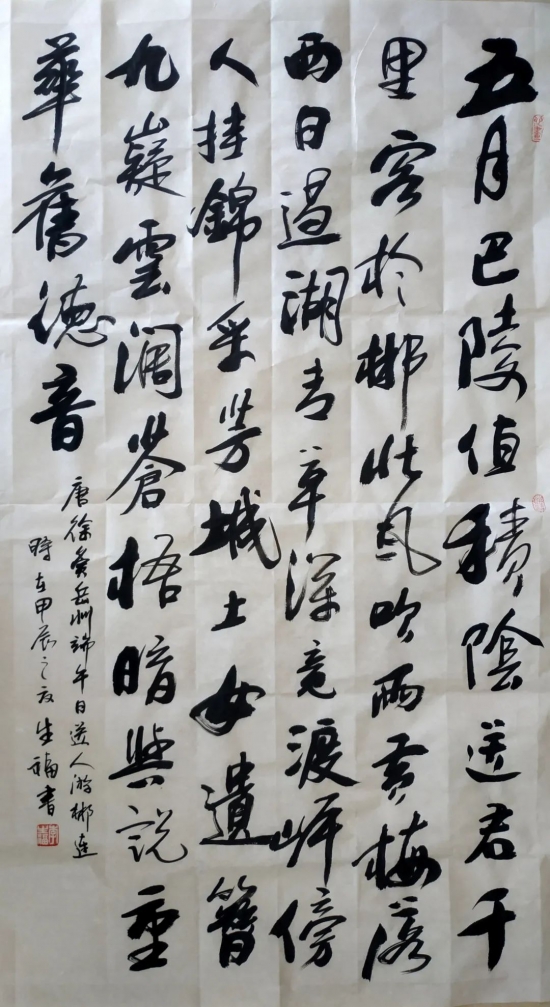 五月巴陵值積陰送君千
里客於郴北風吹雨黄梅落
西日過湖青草深竟渡岸傍
人挂錦采芳城士女遺簪
九嶷雲阔蒼梧暗與説重
華舊德音
唐徐夤岳州端午日送人游郴連
時在甲辰之夏生福書